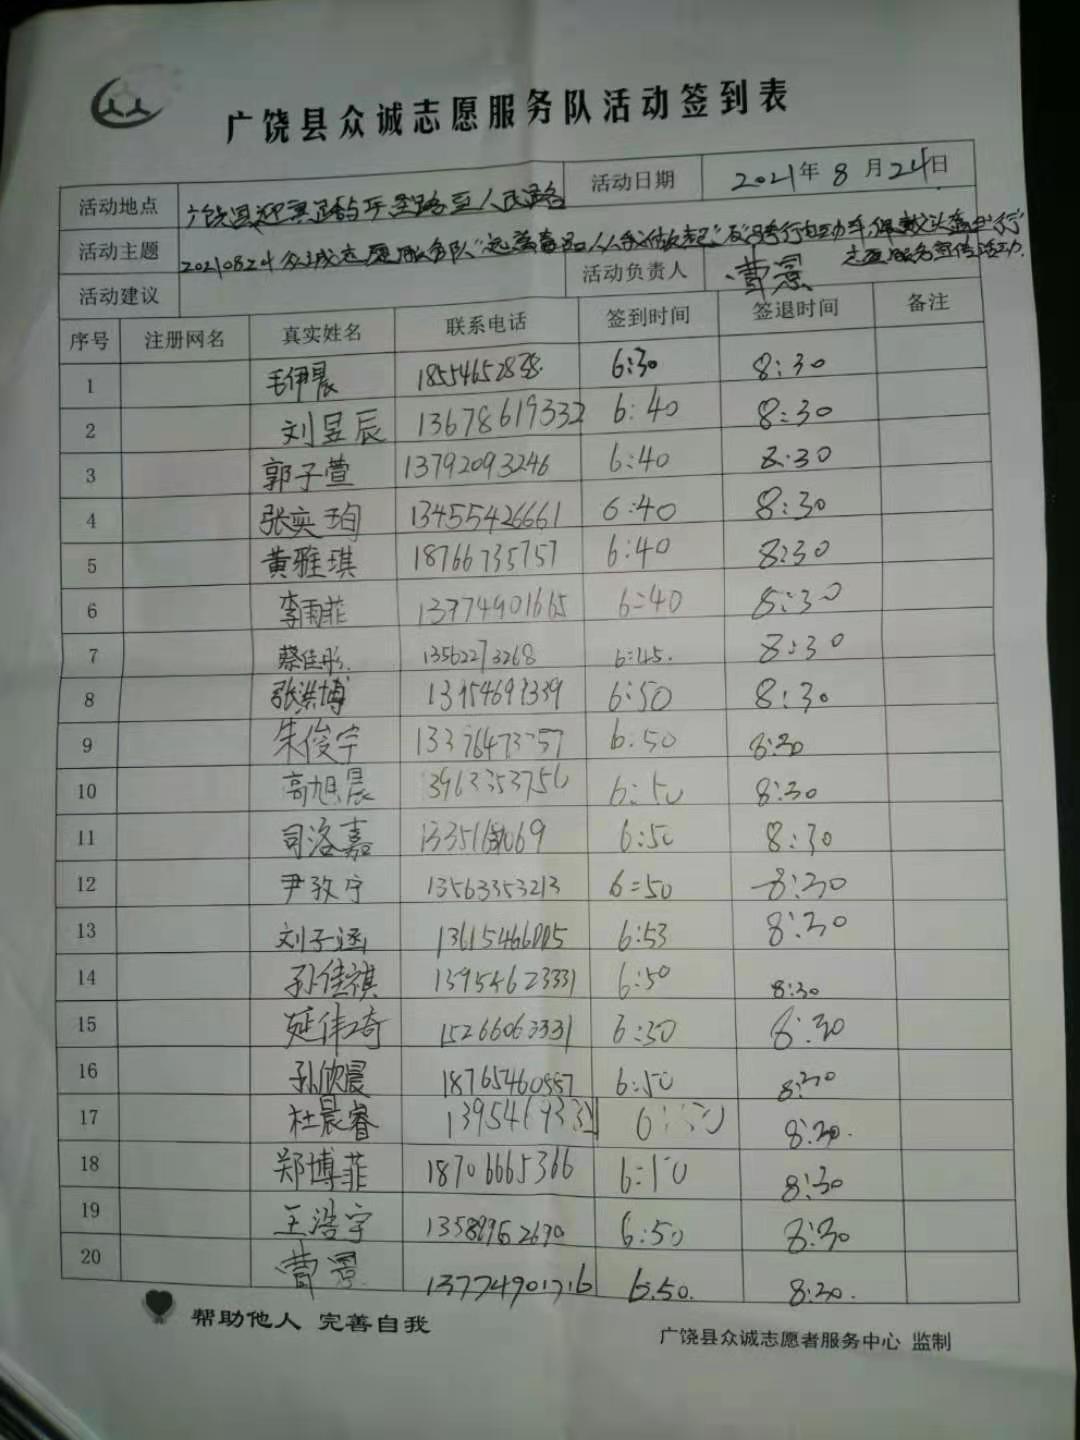 广饶县众诚志愿服务队活动签到表
活动地点 广饶县迎宾路与乐安路至人民路 活动日期 2021年8月24日
活动主题 20210824众诚志愿服务队"远离毒品人人我做起"及"骑行电动车,佩戴头盔出行"
志愿服务宣传活动.
活动建议 活动负责人 曹景
序号 注册网名 真实姓名 联系电话 签到时间 签退时间 备注
1 毛伊晨 6:30 8:30
2 刘昱辰 13678619332 6:40 8:30
3 郭子萱 13792093246 6:40 8:30
4 张奕珣 13455426661 6:40 8:30
5 黄雅琪 18766735757 6:40 8:30
6 李雨菲 13774901665 6:40 8:30
7 蔡佳彤 13562273268 6:45. 8:30
8 张洪博 6:50 8:30
9 朱俊宇 6:50 8:30
10 高旭晨 6:50 8:30
11 司洛嘉 6:50 8:30
12 尹孜宁 13563353213 6:50 8:30
13 刘子涵 6:53 8:30
14 孙佳祺 13954623331 6:50 8:30
15 延伟琦 15266063331 6:30 8:30
16 孙欣晨 18765460557 6:50 8:30
17 杜晨睿 8:30.
18 郑博菲 18706665366 6:50 8:30
19 王浩宇 6:50 8:30
20 曹景 6:50. 8:30.
帮助他人 完善自我
广饶县众诚志愿者服务中心 监制